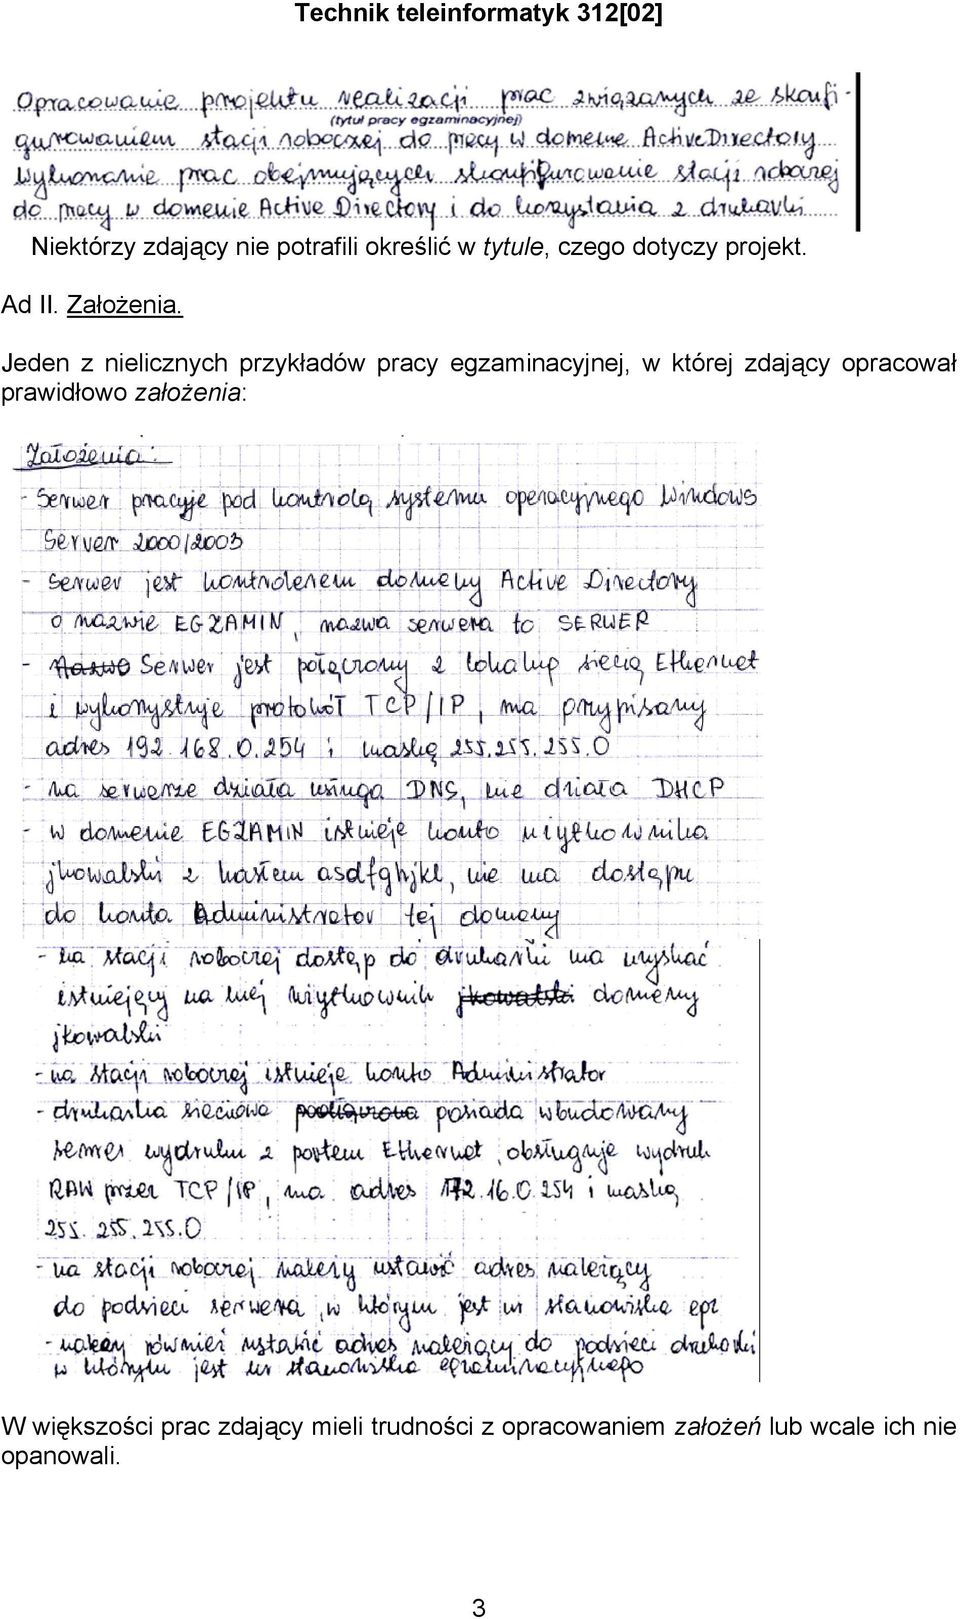 Technik teleinformatyk 312[02]
Opracowanie projektu realizacji prac związanych ze skonfi-
(tytuł pracy egzaminacyjnej)
gurowaniem stacji roboczej do pracy w domenie Active Directory
Wykonanie prac obejmujących skonfigurowanie stacji roboczej
do pracy w domenie Active Directory i do korzystania z drukarki
Niektórzy zdający nie potrafili określić w tytule, czego dotyczy projekt.
Ad II. Założenia.
Jeden z nielicznych przykładów pracy egzaminacyjnej, w której zdający opracował
prawidłowo założenia:
Założenia:
- Serwer pracuje pod kontrolą systemu operacyjnego Windows
Server 2000/2003
- Serwer jest kontrolerem domeny Active Directory
o nazwie EGZAMIN, nazwa serwera to SERWER
- Nazwo Serwer jest połączony z lokalną siecią Ethernet
i wykorzystuje protokół TCP/IP, ma przypisany
adres 192.168.0.254 i maskę 255.255.255.0
- na serwerze działa usługa DNS, nie działa DHCP
- w domenie EGZAMIN istnieje konto użytkownika
jkowalski z hasłem asdfghjkl, nie ma dostępu
do konta Administrator tej domeny
- na stacji roboczej dostęp do drukarki ma uzyskać
istniejący na niej użytkownik jkowalski domeny
jkowalski
- na stacji roboczej istnieje konto Administrator
- drukarka sieciowa posiada wbudowany
serwer wydruku z portem Ethernet, obsługuje wydruk
RAW przez TCP/IP, ma adres 172.16.0.254 i maską
255.255.255.0
- na stacji roboczej należy ustawić adres należący
do podsieci serwera, w którym jest nr stanowiska egz
- należy również ustawić adres należący do podsieci drukarki
w którym jest nr stanowiska egzaminacyjnego
W większości prac zdający mieli trudności z opracowaniem założeń lub wcale ich nie
opanowali.
3